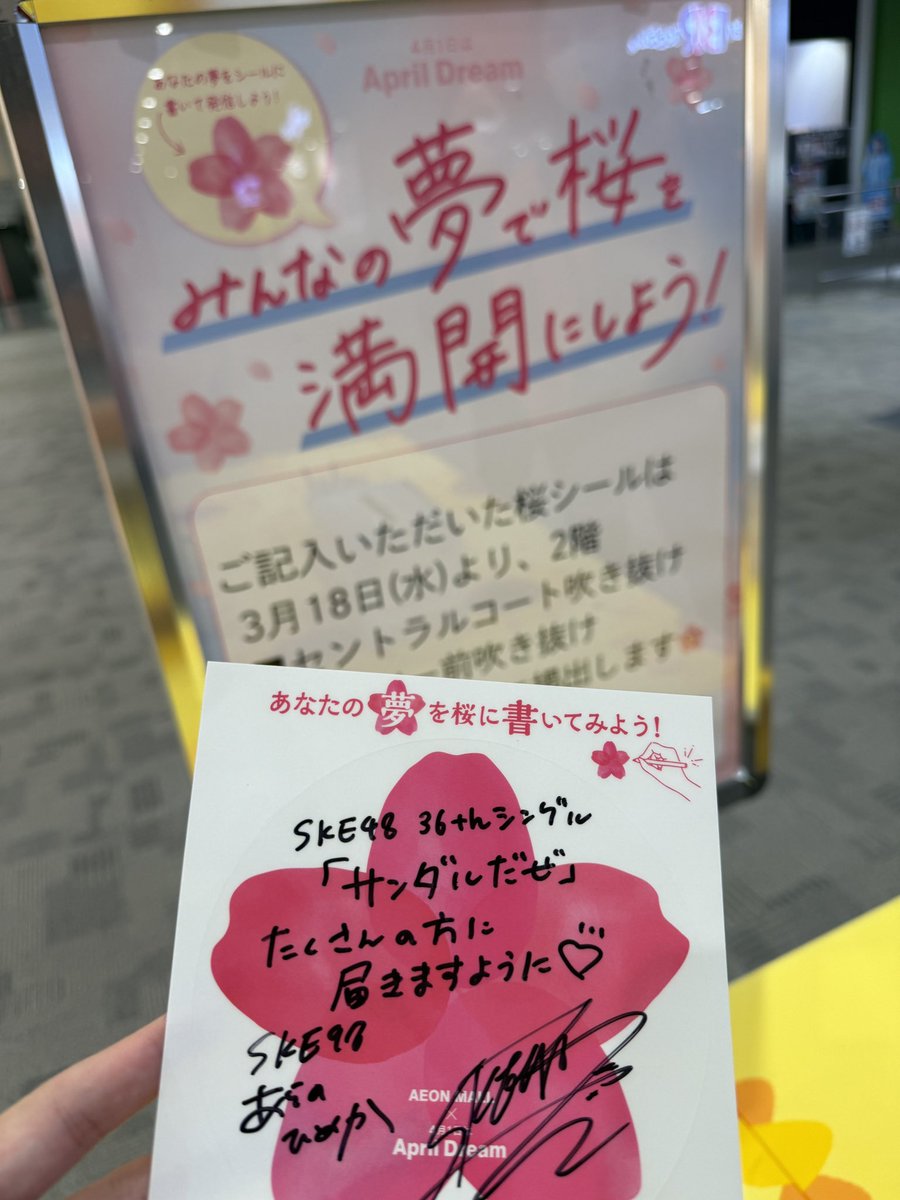 あなたの夢をシールに
書いて発信しよう!
4月1日は
April Dream
みんなの夢で桜を
満開にしよう!
ご記入いただいた桜シールは
3月18日(水)より、2階
セントラルコート吹き抜け
前吹き抜け
出します
あなたの夢を桜に書いてみよう!
SKE48 36thシングル
「サンダルだぜ」
たくさんの方に
届きますように♡
SKE48
あらの
ひめか
AEON MALL
×
4月1日は
April Dream